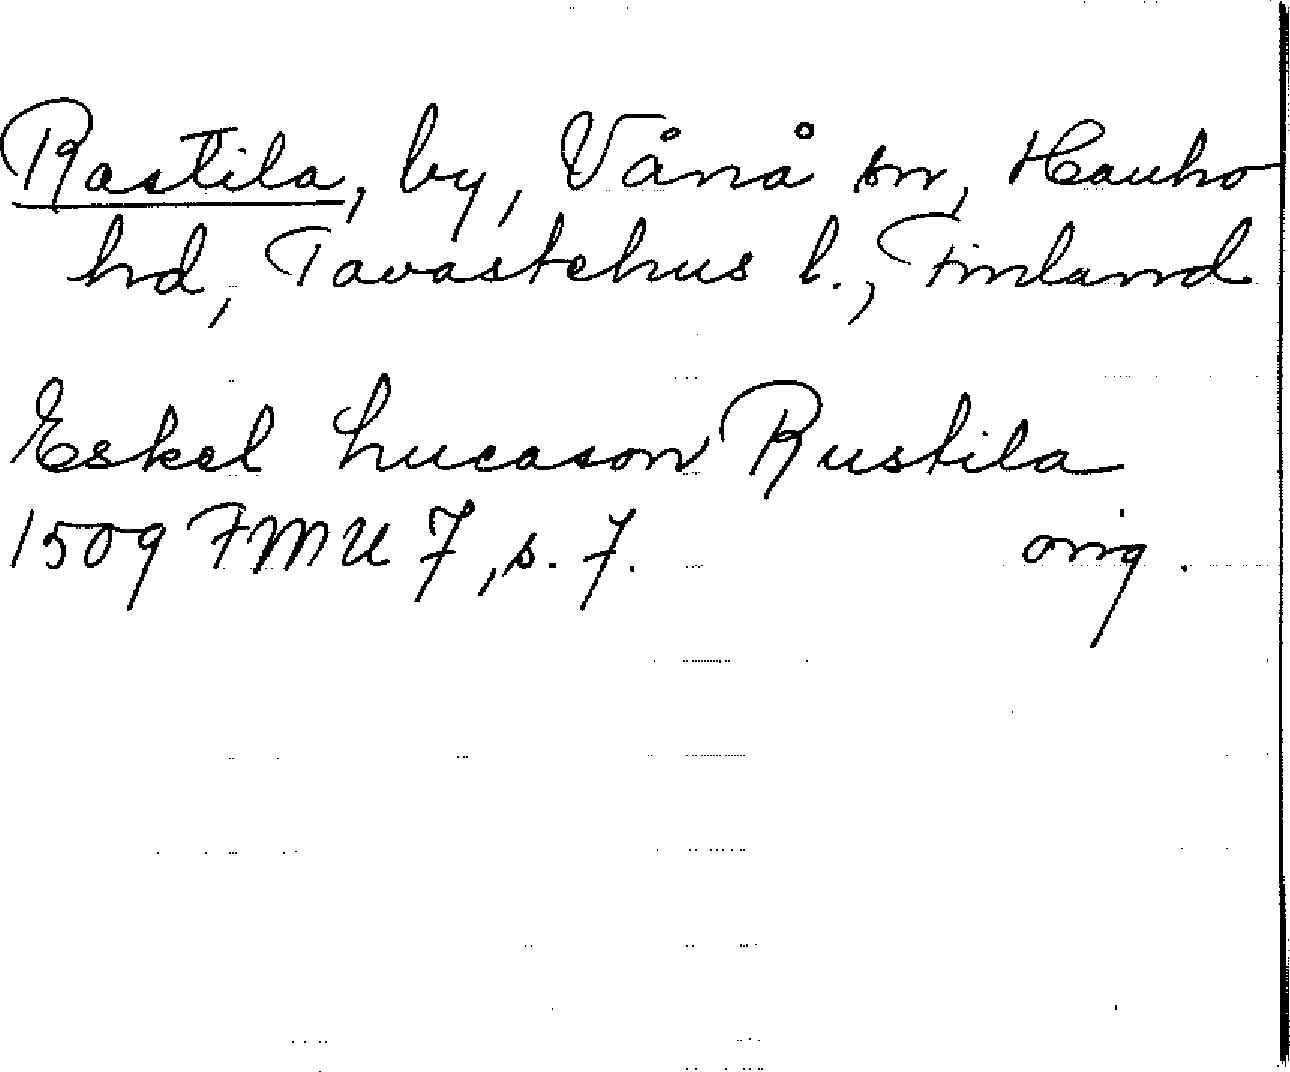 Rastila, by, Vånå sn, Hauho
hd, Tavastehus l., Finland
Eskel Lucason Rustila
1509 FMU 7, s. 7. orig.